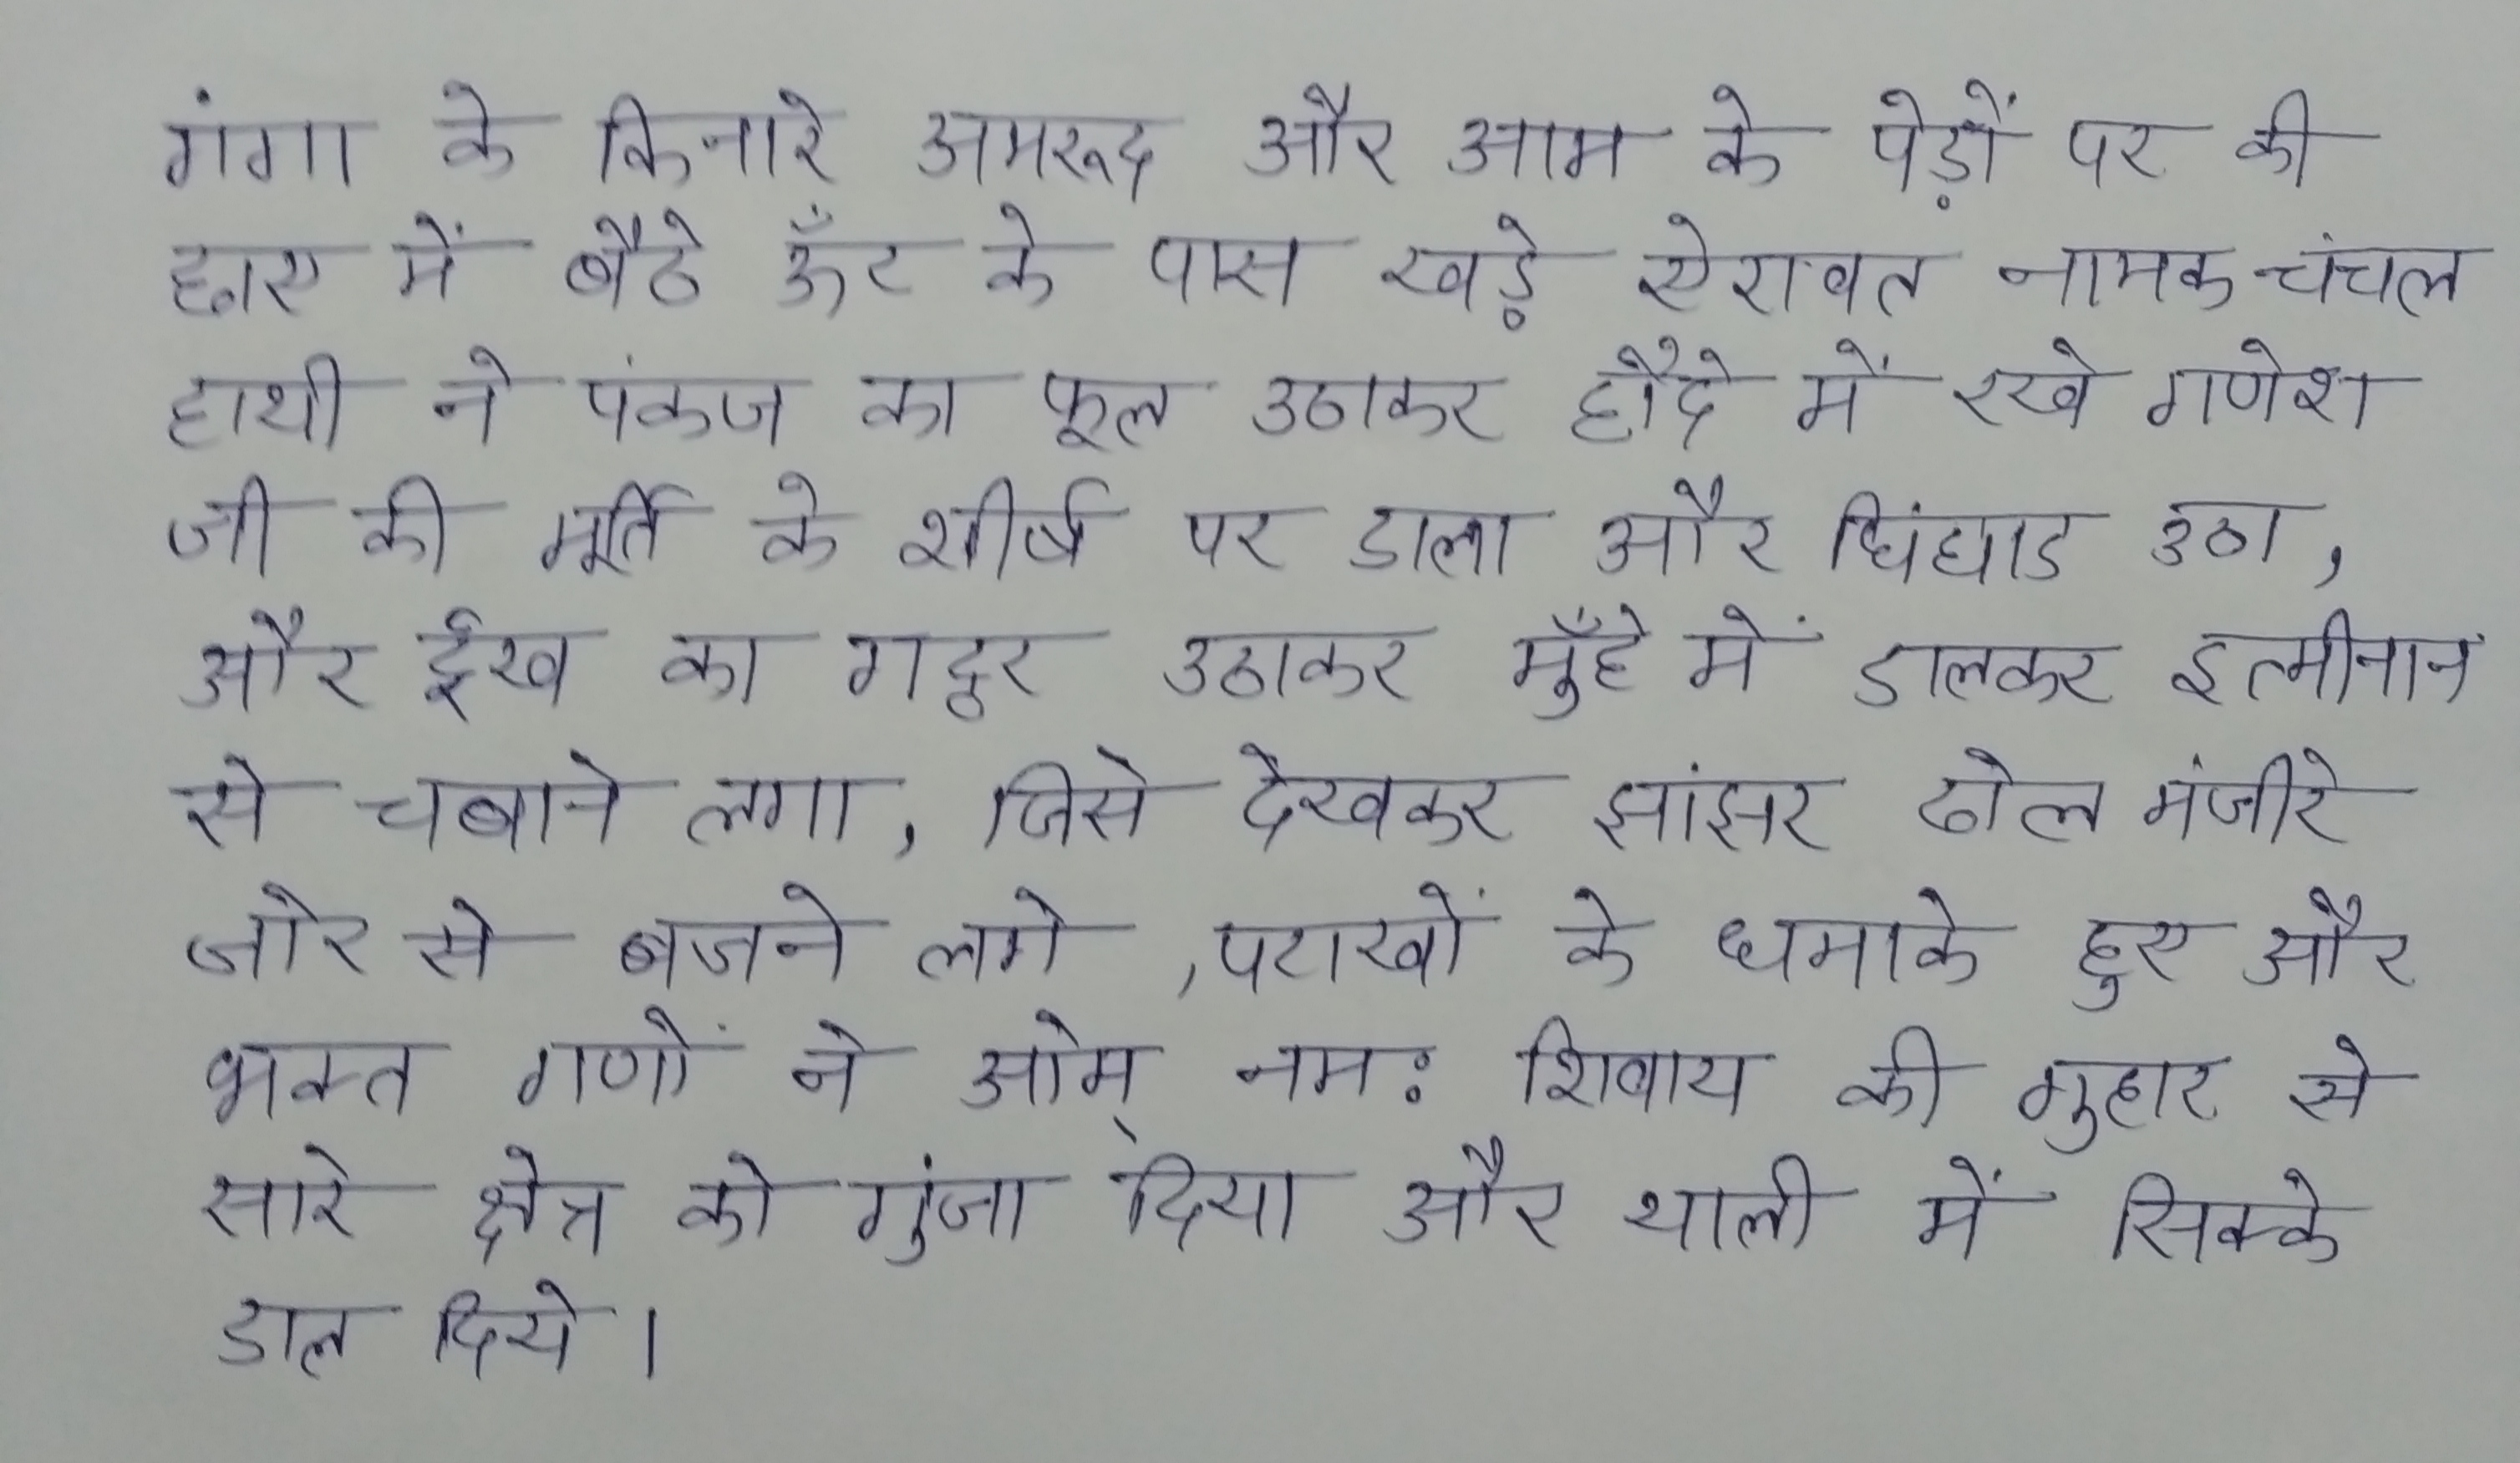 गंगा के किनारे अमरूद और आम के पेड़ों पर की
छाए में बैठे ऊँट के पास खड़े ऐरावत नामक चंचल
हाथी ने पंकज का फूल उठाकर हौदे में रखे गणेश
जी की मूर्ति के शीर्ष पर डाला और घिंघाड उठा,
और ईख का गट्ठर उठाकर मुँहे में डालकर इत्मीनान
से चबाने लगा, जिसे देखकर झांझर ढोल मंजीरे
जोर से बजने लगे ,पटाखों के धमाके हुए और
भक्त गणों ने ओम् नमः शिवाय की गुहार से
सारे क्षेत्र को गुंजा दिया और थाली में सिक्के
डाल दिये।